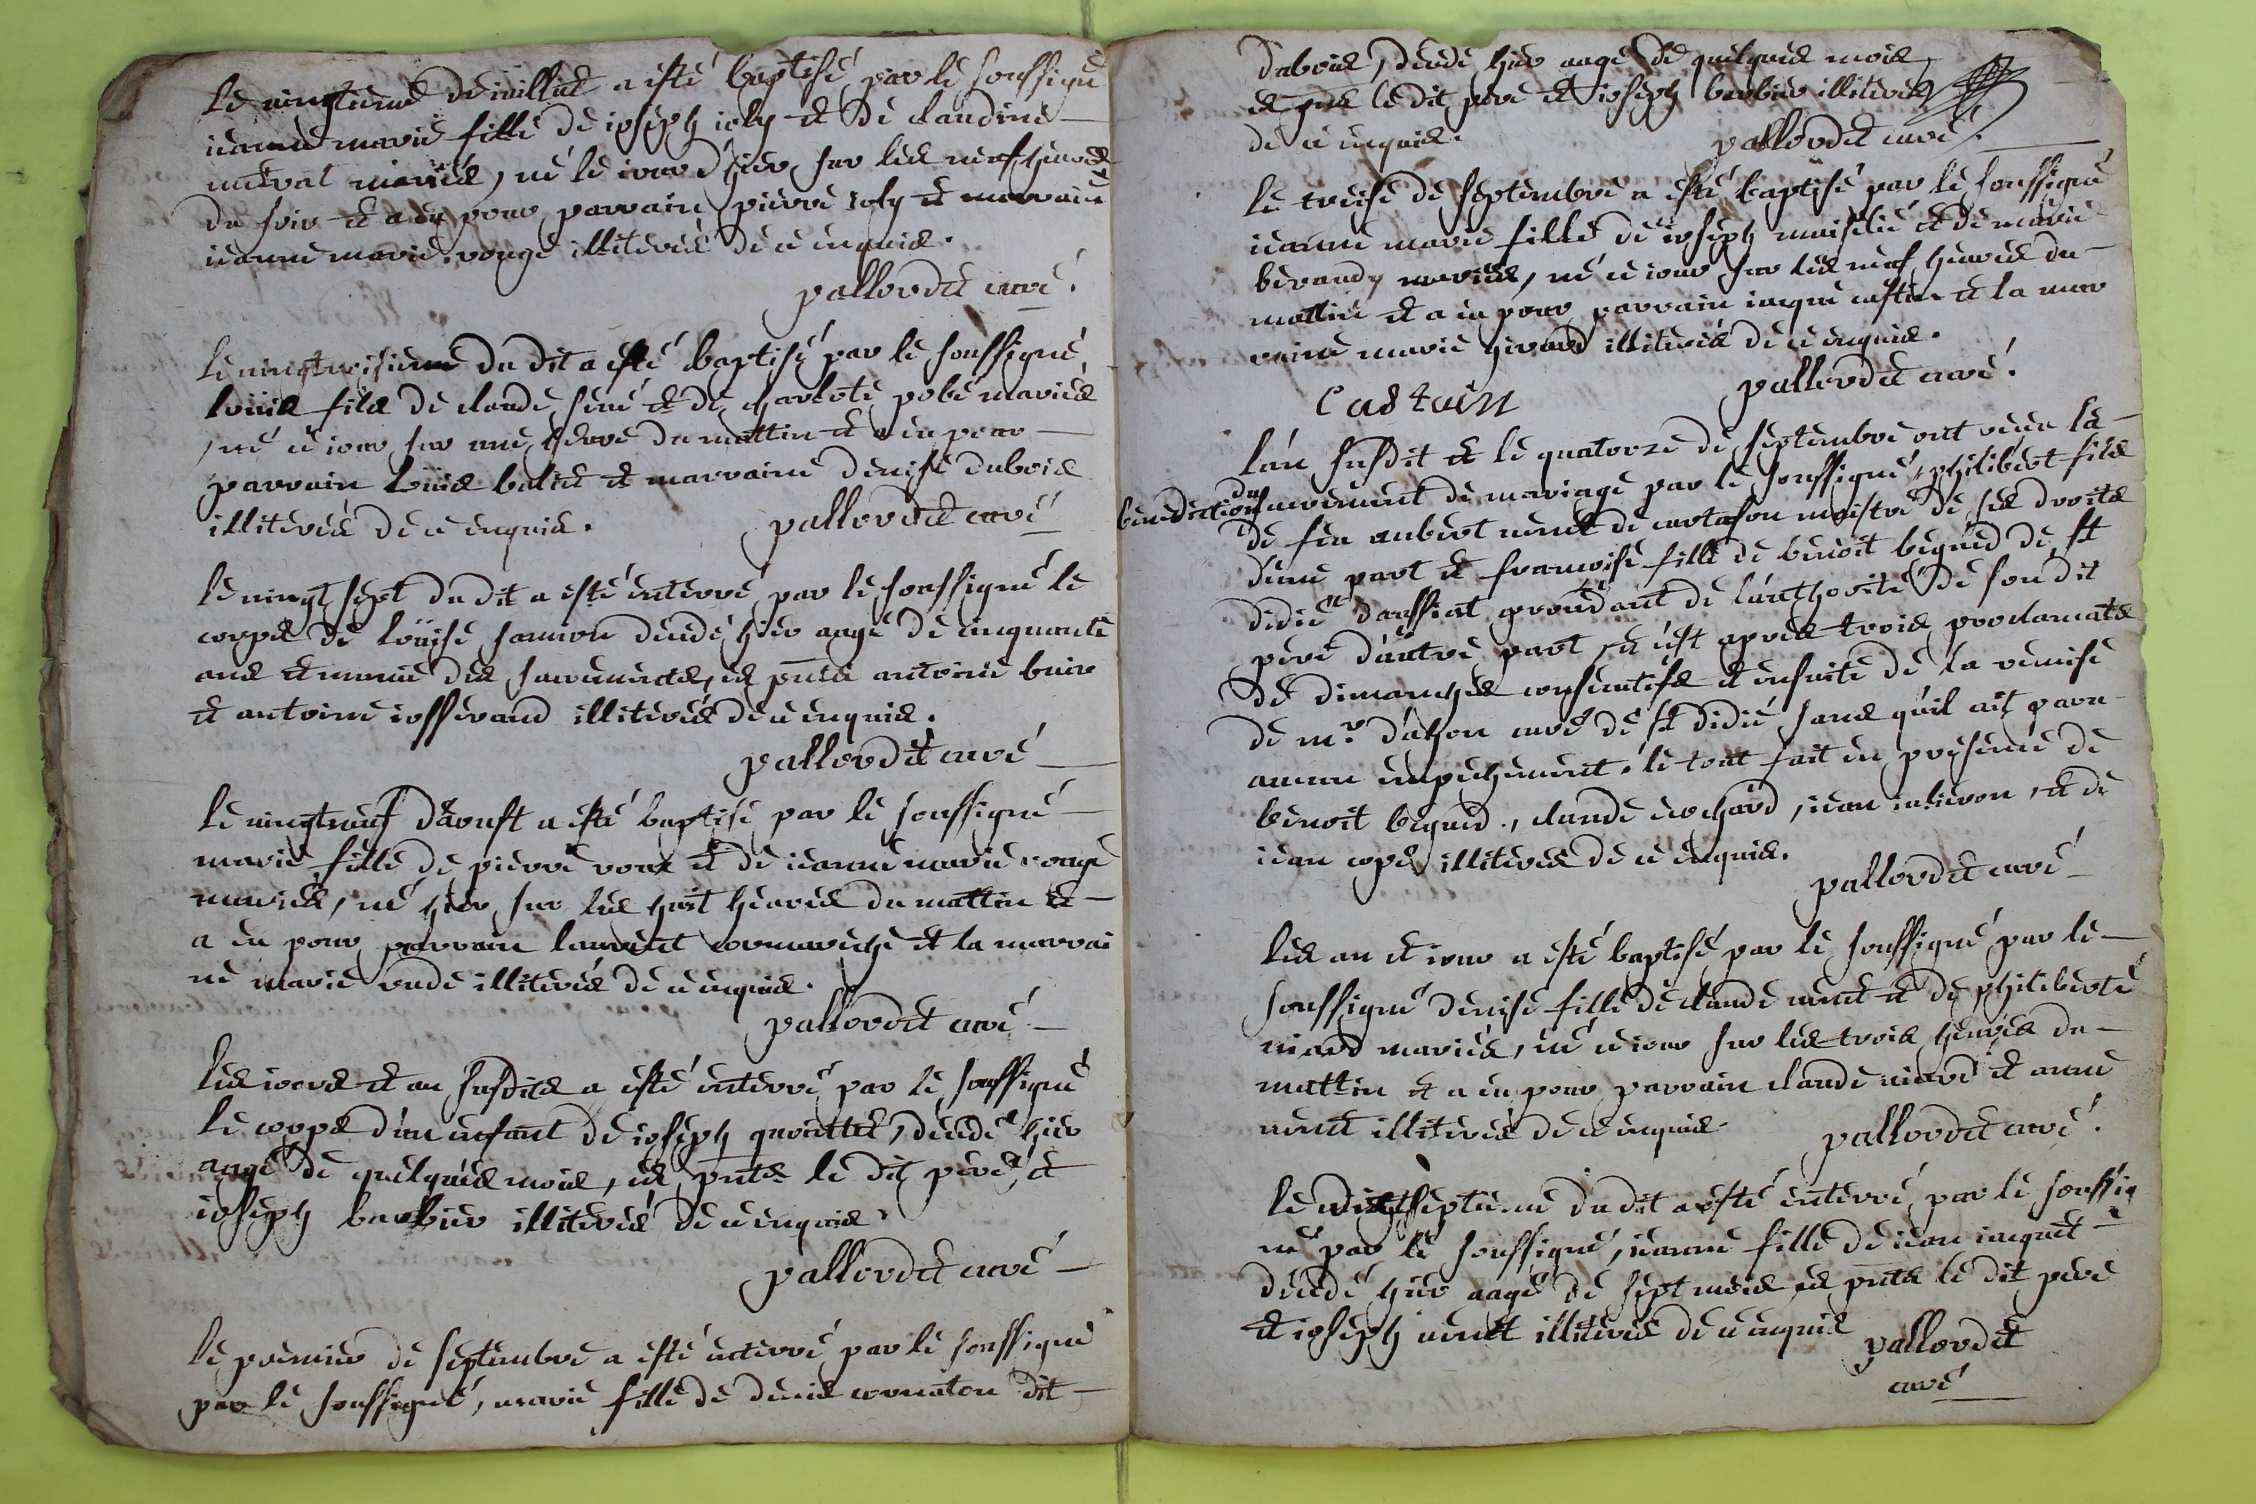 Le vingtieme de iuillet a esté baptisé par le soussigné
ieanne marie fille de ioseph ioly et de claudine
mariés, né le iour d'hier sur les neuf heures
du soir et a eu pour parrain pierre ioly et marraine
ieanne marie rouge illiterés de ce enquis.
pallordet curé.
Le vingtroisieme du dit a esté baptisé par le soussigné
louis fils de claude sene et de charlote pobé mariés
, né ce iour sur une heure du mattin et a eu pour
parrain louis et marraine denise dubois
illiterés de ce enquis. pallordet curé
Le vingt sept du dit a esté enterré par le soussigné le
corps de loüise decedé hier aagé de cinquante
ans et munie des sacrements, es pnts antoine buir
et antoine iosserand illiterés de ce enquis.
pallordet curé
Le vingtneuf d'aoust a esté baptisé par le soussigné
marie fille de pierre roux et de ieanne marie rouge
mariés, né hier sur les huit heures du mattin et
a eu pour parrain laurent cormareche et la marrai
ne marie rude illiterés de ce enquis.
pallordet curé
Les iours et an susdits a esté enterré par le soussigné
le corps d'un enfant de ioseph, decedé hier
aagé de quelques mois, es pnts le dit pere et
ioseph barbier illiterés de ce enquis.
pallordet curé
Le premier de septembre a esté enterré par le soussigné
par le soussigné, marie fille de denis cornaton dit
dubois, decedé hier aagé de quelques mois
es pnts le dit pere et ioseph barbier illiterés
de ce enquis. pallordet curé.
Le treise de septembre a esté baptisé par le soussigné
ieanne marie fille de ioseph et de marie
beraudy mariés, né ce iour sur les neuf heures du
mattin et a eu pour parrain iaque castin et la mar
raine marie girard illiterés de ce enquis.
Castuin pallordet curé.
L'an susdit et le quatorze de septembre ont receu la
benediction du sacrement de mariage par le soussigné, philibert fils
de feu aubert venet de cortafon maistre de ses droits
d'une part et francoise fille de benoit beguet de st
didié d'aussiat, procedant de l'authorité de son dit
pere d'autre part, ce est apres trois proclamats
de dimanches consecutifs et ensuite de la remise
de mr. curé de st didié sans qu'il ait paru
aucun empechement. le tout fait en presence de
benoit beguet, claude, iean, et de
iean illiterés de ce enquis.
pallordet curé
Les an et iour a esté baptisé par le soussigné par le
soussigné denise fille de claude venet et de philiberte
niard mariés, né ce iour sur les trois heures du
mattin et a eu pour parrain claude niard et anne
venet illiterés de ce enquis. pallordet curé.
Le dixseptieme du dit a esté enterré par le soussig
né par le soussigné, ieanne fille de iean iaquet
decedé hier aagé de sept mois es pnts le dit pere
et ioseph venet illiterés de ce enquis pallordet
curé